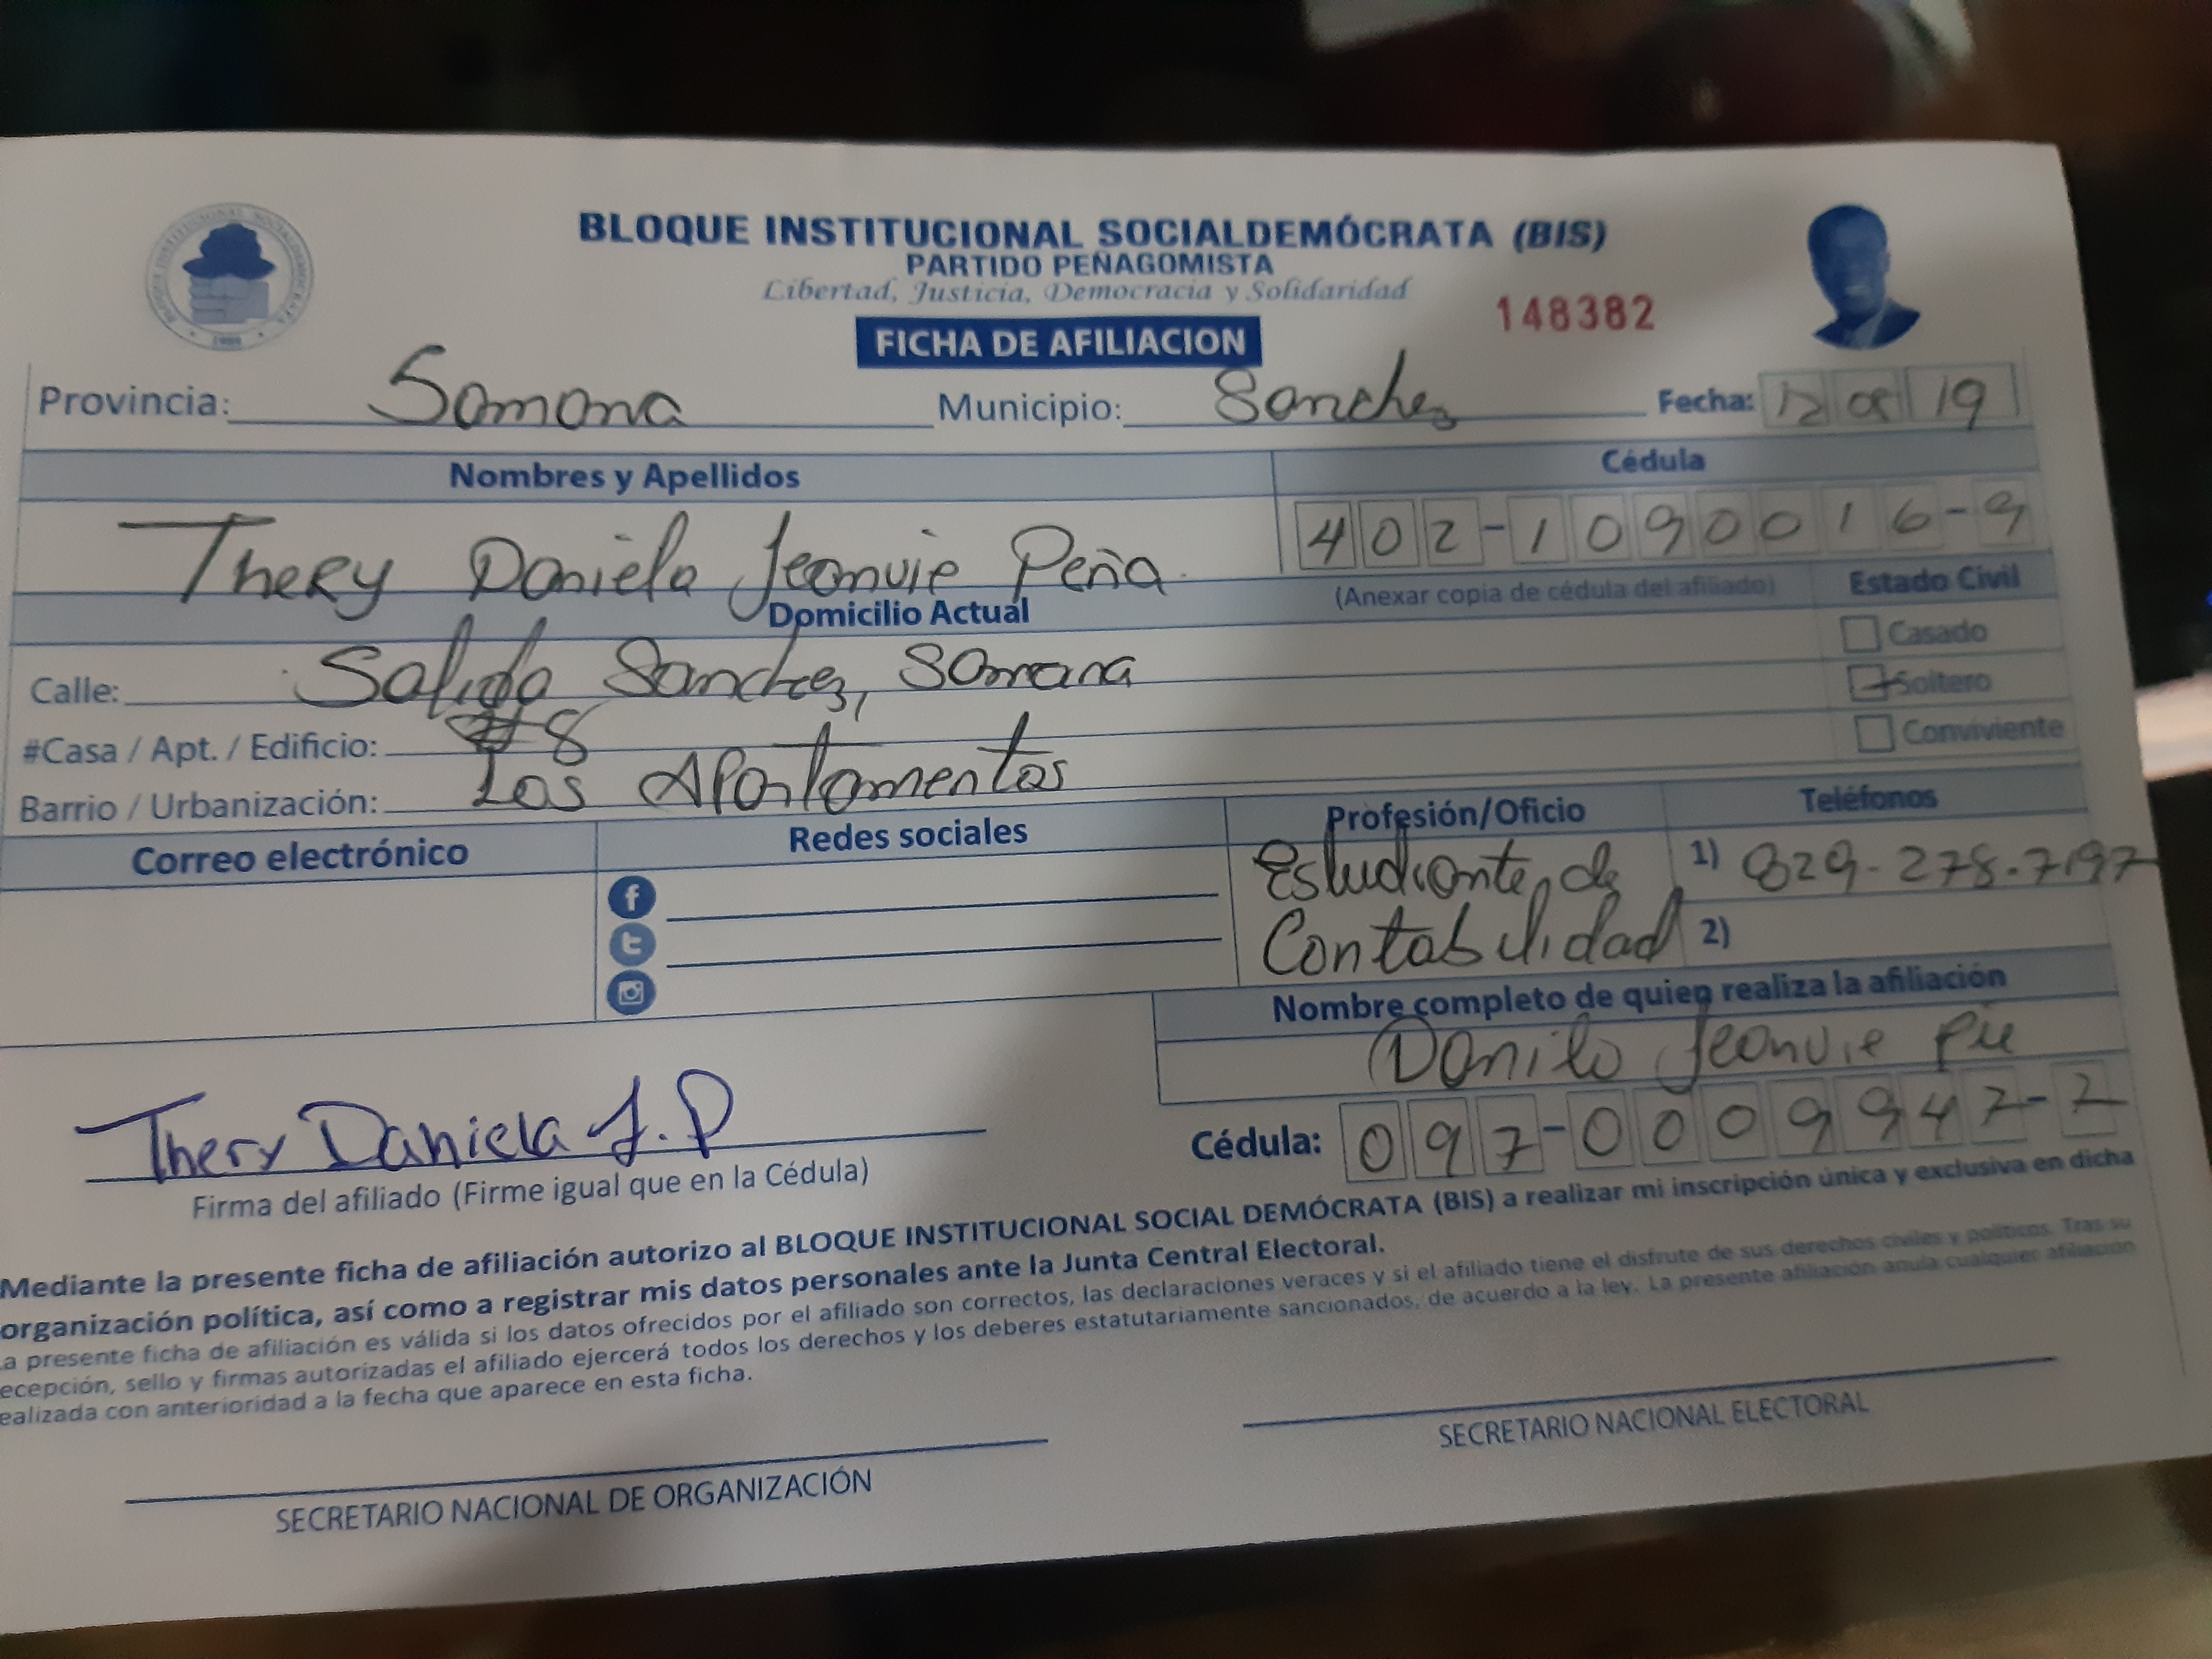 BLOQUE INSTITUCIONAL SOCIALDEMÓCRATA (BIS)
PARTIDO PEÑAGOMISTA
Libertad, Justicia, Democracia y Solidaridad
148382
FICHA DE AFILIACION
Provincia: Samana Municipio: Sanchez Fecha: 12 08 19
Nombres y Apellidos Cédula
Thery Daniela Jeanvie Peña 402-1090016-9
(Anexar copia de cédula del afiliado) Estado Civil
Domicilio Actual
Casado
Calle: Salida Sanchez, Samana
Soltero
#Casa / Apt. / Edificio: #8
Conviviente
Barrio / Urbanización: Los Apartamentos
Correo electrónico Redes sociales Profesión/Oficio Teléfonos
Estudiante de 1) 829-278-7197
Contabilidad 2)
Nombre completo de quien realiza la afiliación
Danilo Jeanvie Pie
Thery Daniela J.P
Cédula: 097-0009947-2
Firma del afiliado (Firme igual que en la Cédula)
Mediante la presente ficha de afiliación autorizo al BLOQUE INSTITUCIONAL SOCIAL DEMÓCRATA (BIS) a realizar mi inscripción única y exclusiva en dicha
organización política, así como a registrar mis datos personales ante la Junta Central Electoral.
La presente ficha de afiliación es válida si los datos ofrecidos por el afiliado son correctos, las declaraciones veraces y si el afiliado tiene el disfrute de sus derechos civiles y políticos. Tras su
ecepción, sello y firmas autorizadas el afiliado ejercerá todos los derechos y los deberes estatutariamente sancionados, de acuerdo a la ley. La presente afiliación anula cualquier afiliación
ealizada con anterioridad a la fecha que aparece en esta ficha.
SECRETARIO NACIONAL DE ORGANIZACIÓN
SECRETARIO NACIONAL ELECTORAL